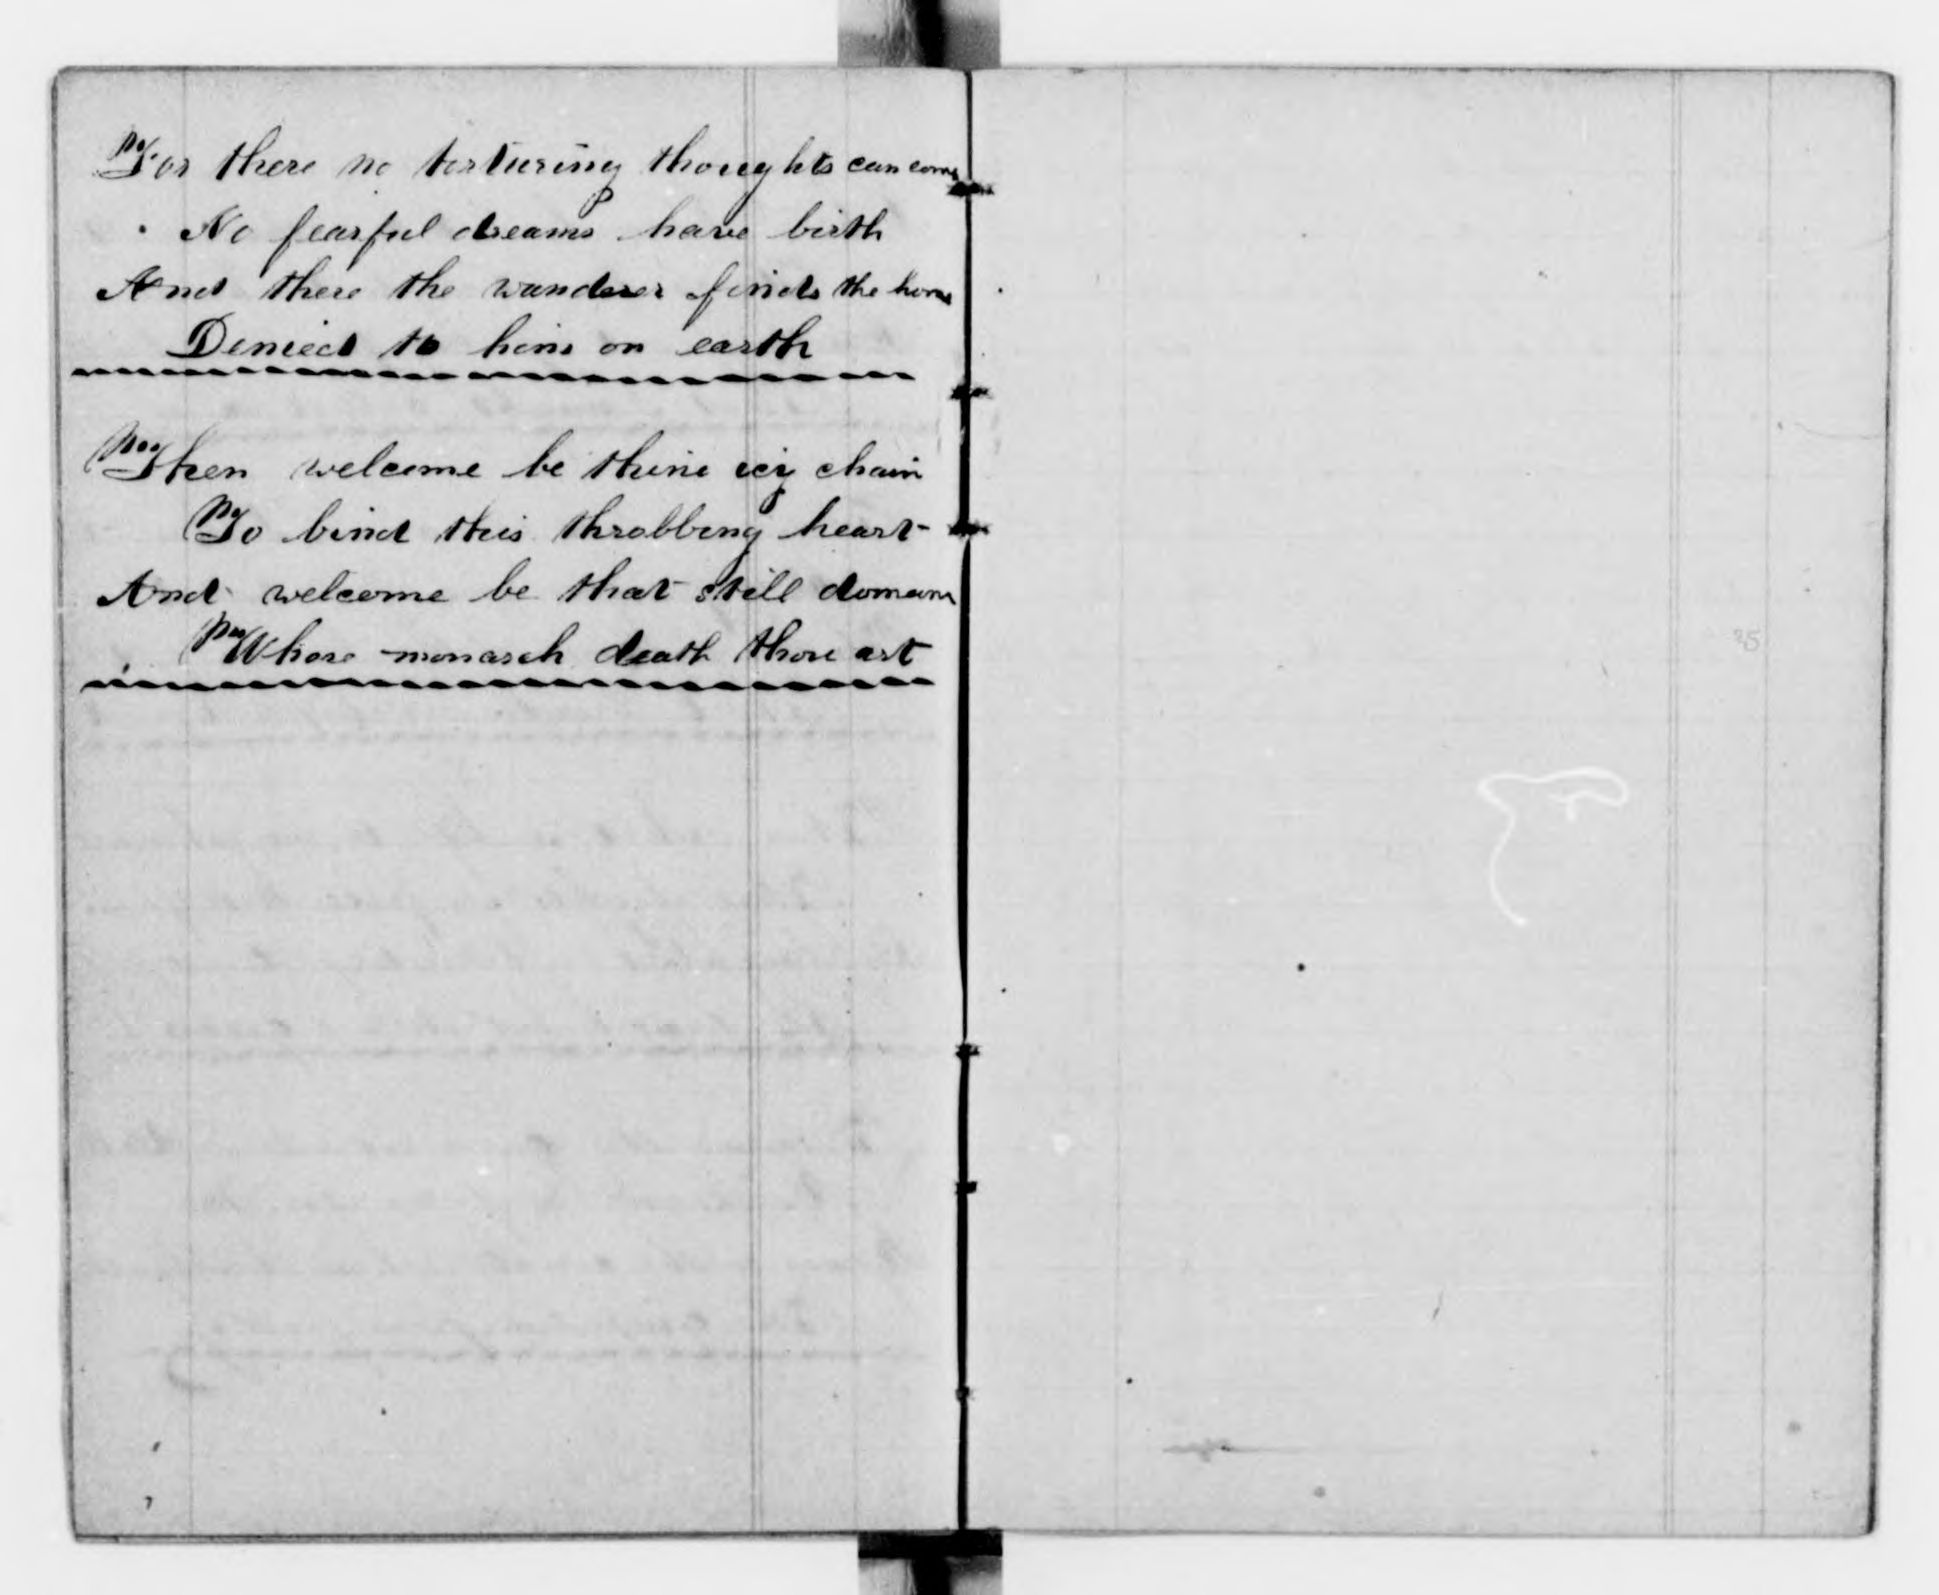 For there no torturing thoughts can come
No fearful dreams have birth
And there the wanderer finds the home
Denied to him on earth
Then welcome be thine icy chain
To bind this throbbing heart
And welcome be that still domain
Whose monarch death thou art